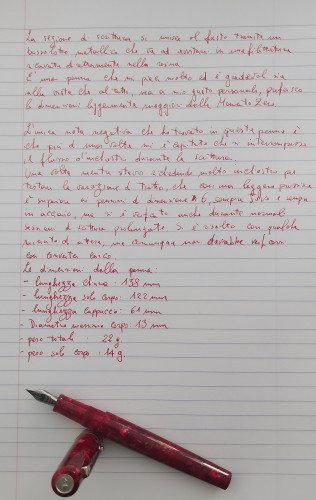 La sezione di scrittura si unisce al fusto tramite un
bussolotto metallico che va ad avvitarsi in una filettatura
ricavata direttamente nella resina.
E' una penna che mi piace molto ed è gradevole sia
alla vista che al tatto, ma a mio gusto personale, preferisco
le dimensioni leggermente maggiori della Momento Zero.
L'unica nota negativa che ho trovato in questa penna è
che più di una volta mi è capitato che si interrompesse
il flusso d'inchiostro durante la scrittura.
Una volta mentre stavo chiedendo molto inchiostro per
testare la variazione di tratto, che con una leggera pressione
è ampia sui pennini di dimensione #6, sempre Jowo e sempre
in acciaio, ma si è ripetuto anche durante normali
sessioni di scrittura prolungata. Si è risolto con qualche
minuto di attesa, ma comunque non dovrebbe succedere
con converter carico
Le dimensioni della penna:
- lunghezza chiusa: 138 mm
- lunghezza solo corpo: 122 mm
- lunghezza cappuccio: 61 mm
- Diametro massimo corpo: 13 mm
- peso totale : 22 g.
- peso solo corpo : 14 g.